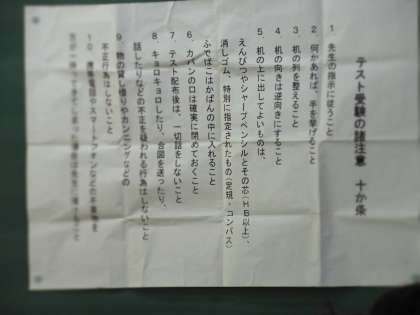 テスト受験の諸注意　十か条
1　先生の指示に従うこと
2　何かあれば、手を挙げること
3　机の列を整えること
4　机の向きは逆向きにすること
5　机の上に出してよいものは、
えんぴつやシャープペンシルとその芯(HB以上)、
消しゴム、特別に指定されたもの(定規・コンパス)
ふでばこはかばんの中に入れること
6　カバンの口は確実に閉めておくこと
7　テスト配布後は、一切話をしないこと
8　キョロキョロしたり、合図を送ったり、
話したりなどの不正を疑われる行為はしないこと
9　物の貸し借りやカンニングなどの
不正行為はしないこと
10　携帯電話やスマートフォンなどの